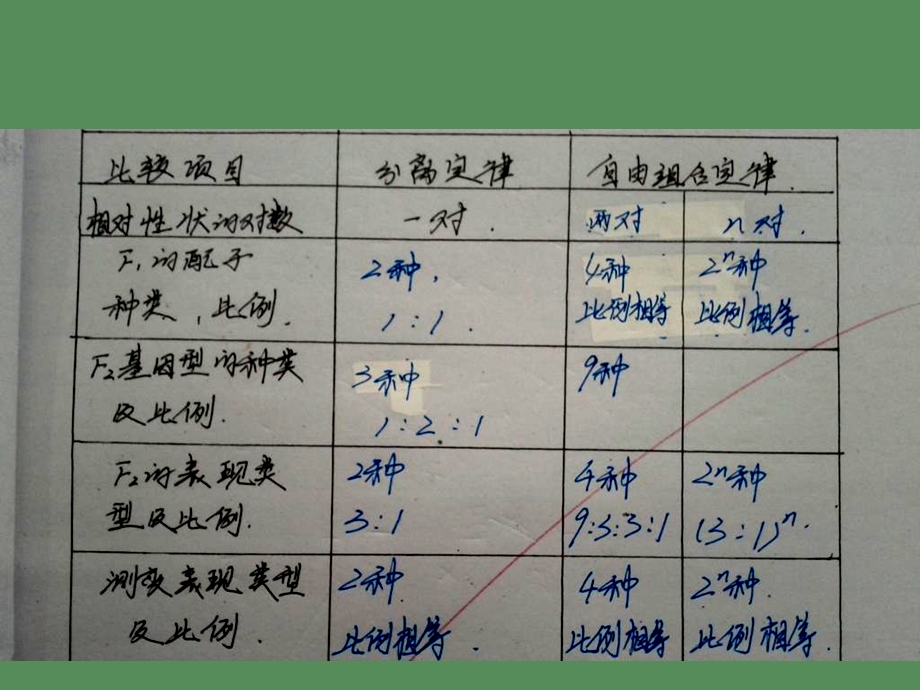 比较项目 分离定律 自由组合定律.
相对性状的对数 一对. 两对 n对.
F₁的配子 2种, 4种 2ⁿ种
种类,比例. 1:1. 比例相等 比例相等.
F₂基因型的种类 3种 9种
及比例. 1:2:1
F₂的表现类 2种 4种 2ⁿ种
型及比例. 3:1 9:3:3:1 (3:1)ⁿ.
测交表现类型 2种 4种 2ⁿ种.
及比例. 比例相等. 比例相等 比例相等.